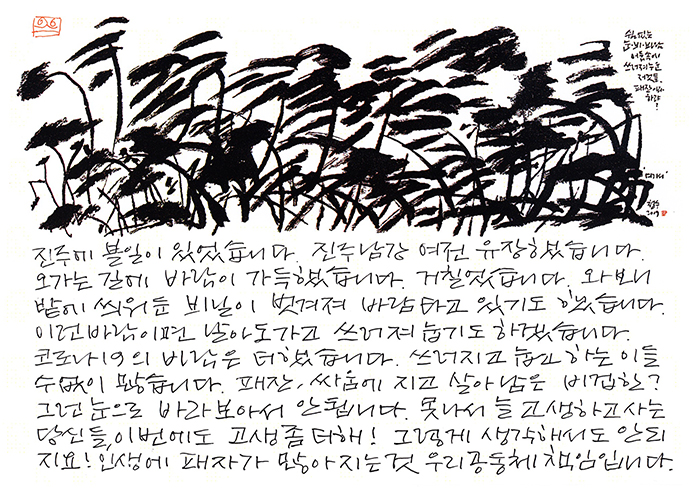 쉼없는
눈·비·바람
어둠속에
쓰러져누운
저것들.
패잔이라
하랴
!
철수
2019
진주에 볼일이 있었습니다. 진주남강 여전 유장했습니다.
오가는 길에 바람이 가득했습니다. 거칠었습니다. 와보니
밭에 씌워둔 비닐이 벗겨져 바람타고 있기도 했습니다.
이런바람이면 날아도가고 쓰러져눕기도 하겠습니다.
코로나19의 바람은 더했습니다. 쓰러지고 눕고하는이들
수없이 많습니다. 패잔, 싸움에 지고 살아남은 비겁한?
그런눈으로 바라보아서 안됩니다. 못나서 늘 고생하고사는
당신들, 이번에도 고생좀더해! 그렇게 생각해서도 안되
지요! 인생에 패자가 많아지는것 우리공동체책임입니다.